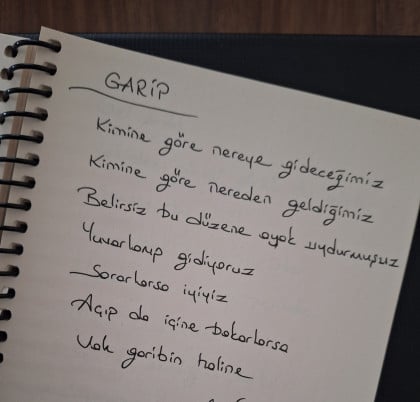 GARİP
Kimine göre nereye gideceğimiz
Kimine göre nereden geldiğimiz
Belirsiz bu düzene ayak uydurmuşuz
Yuvarlanıp gidiyoruz
Sorarlarsa iyiyiz
Açıp da içine bakarlarsa
Vah garibin haline